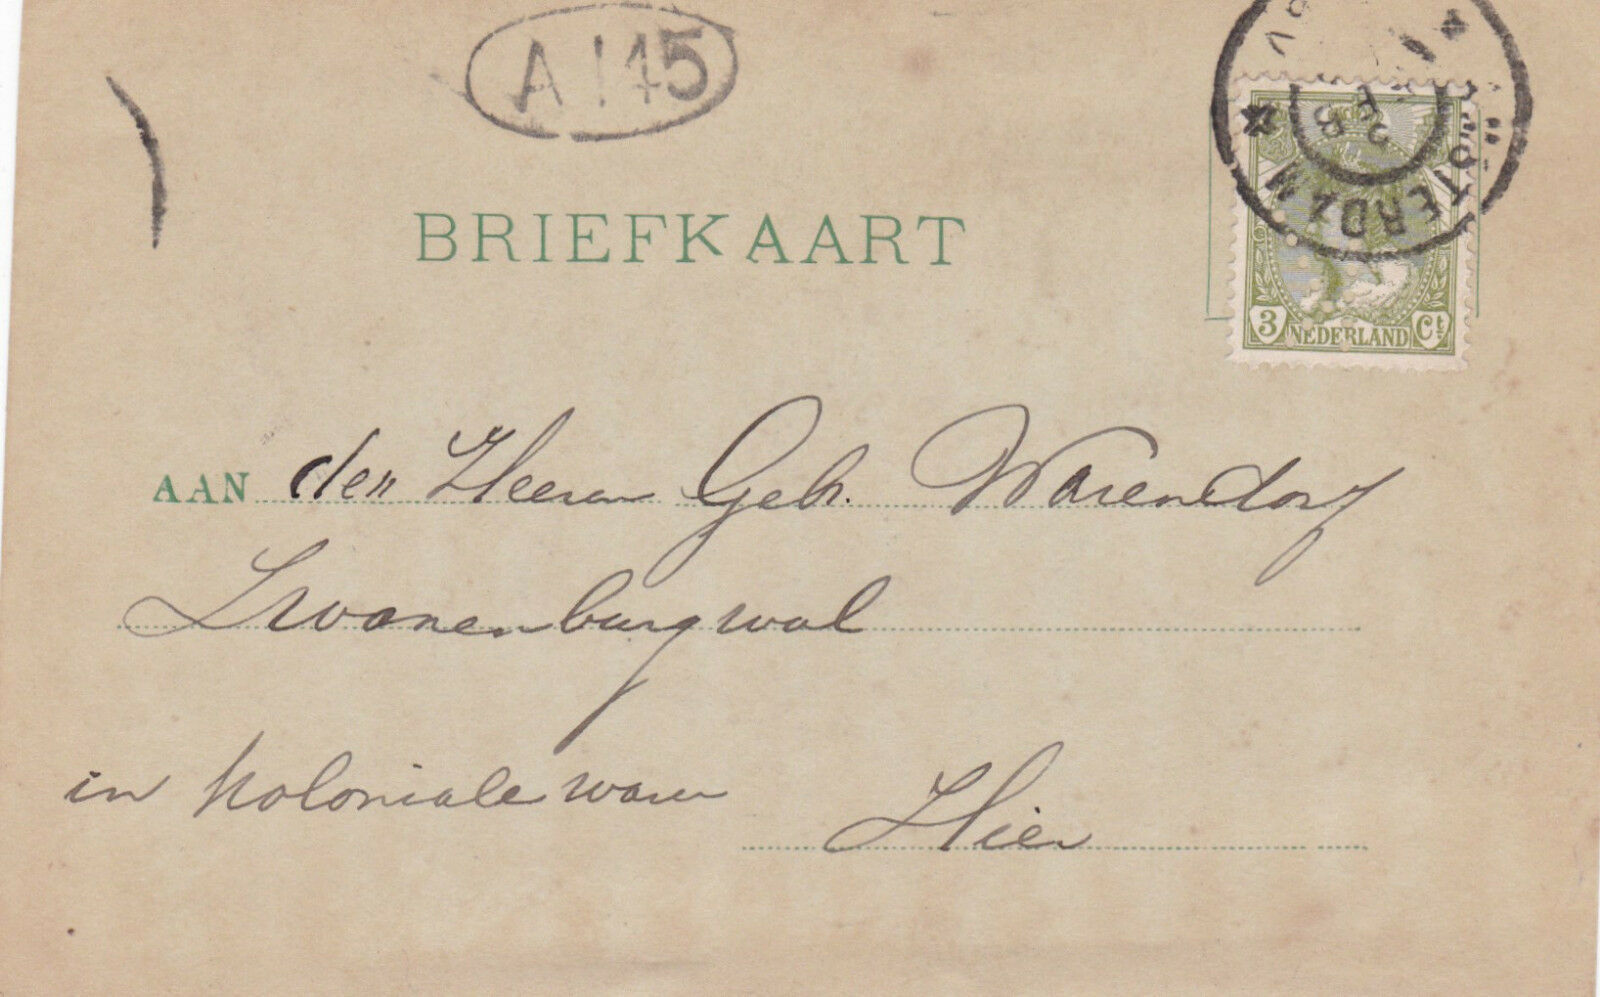 A 145
BRIEFKAART
3 NEDERLAND Ct
AAN den Heeren Gebr. Warendorf
Zwanenburgwal
in koloniale waren
Hier